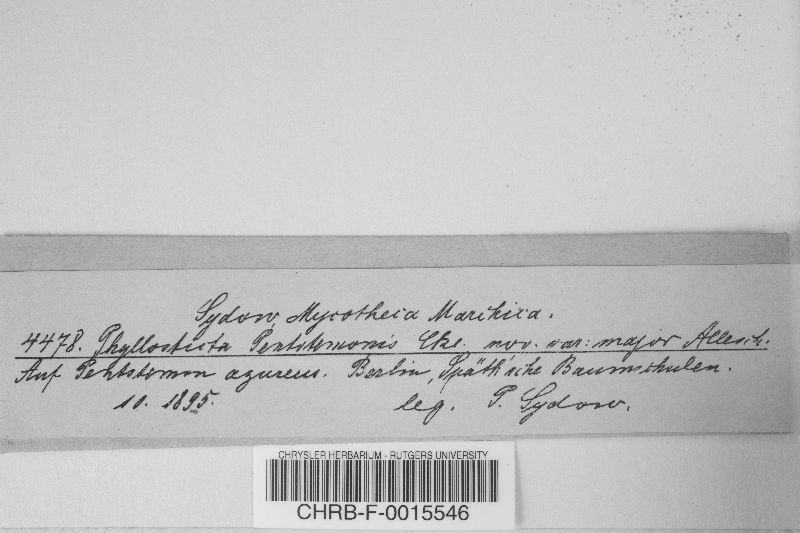 Sydow, Mycotheca Marchica.
4478. Phyllosticta Pentstemonis Cke. nov. var: major Allesch.
Auf Pentstemon azureus. Berlin, Späth'sche Baumschulen.
10. 1895. leg. P. Sydow.
CHRYSLER HERBARIUM - RUTGERS UNIVERSITY
CHRB-F-0015546